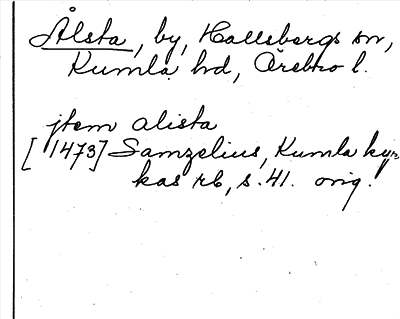 Ålsta, by, Hallsbergs sn,
Kumla hd, Örebro l.
jtem alista
[1473] Samzelius, Kumla kyr-
kas rb, s. 41. orig.